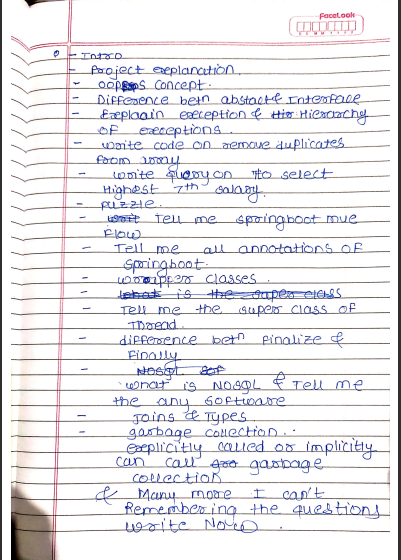 FaceLook
- Intro
- Project explanation.
- oops concept.
- Difference betn abstact & Interface
- Explaain exception & Hierarchy
of exceptions.
- write code on remove duplicates
from array
- write query on to select
Highest 7th salary.
- puzzle.
- Tell me springboot mve
Flow
- Tell me all annotations OF
springboot.
- wrapper classes.
- what is the super class
- Tell me the super class of
Thread.
- difference betn Finalize &
Finally
- NOSQL
what is NOSQL & Tell me
the any software
- Joins & Types.
- garbage collection..
explicitly called or implicitly
can call garbage
collection
& Many more I can't
Remembering the questions
write Now.